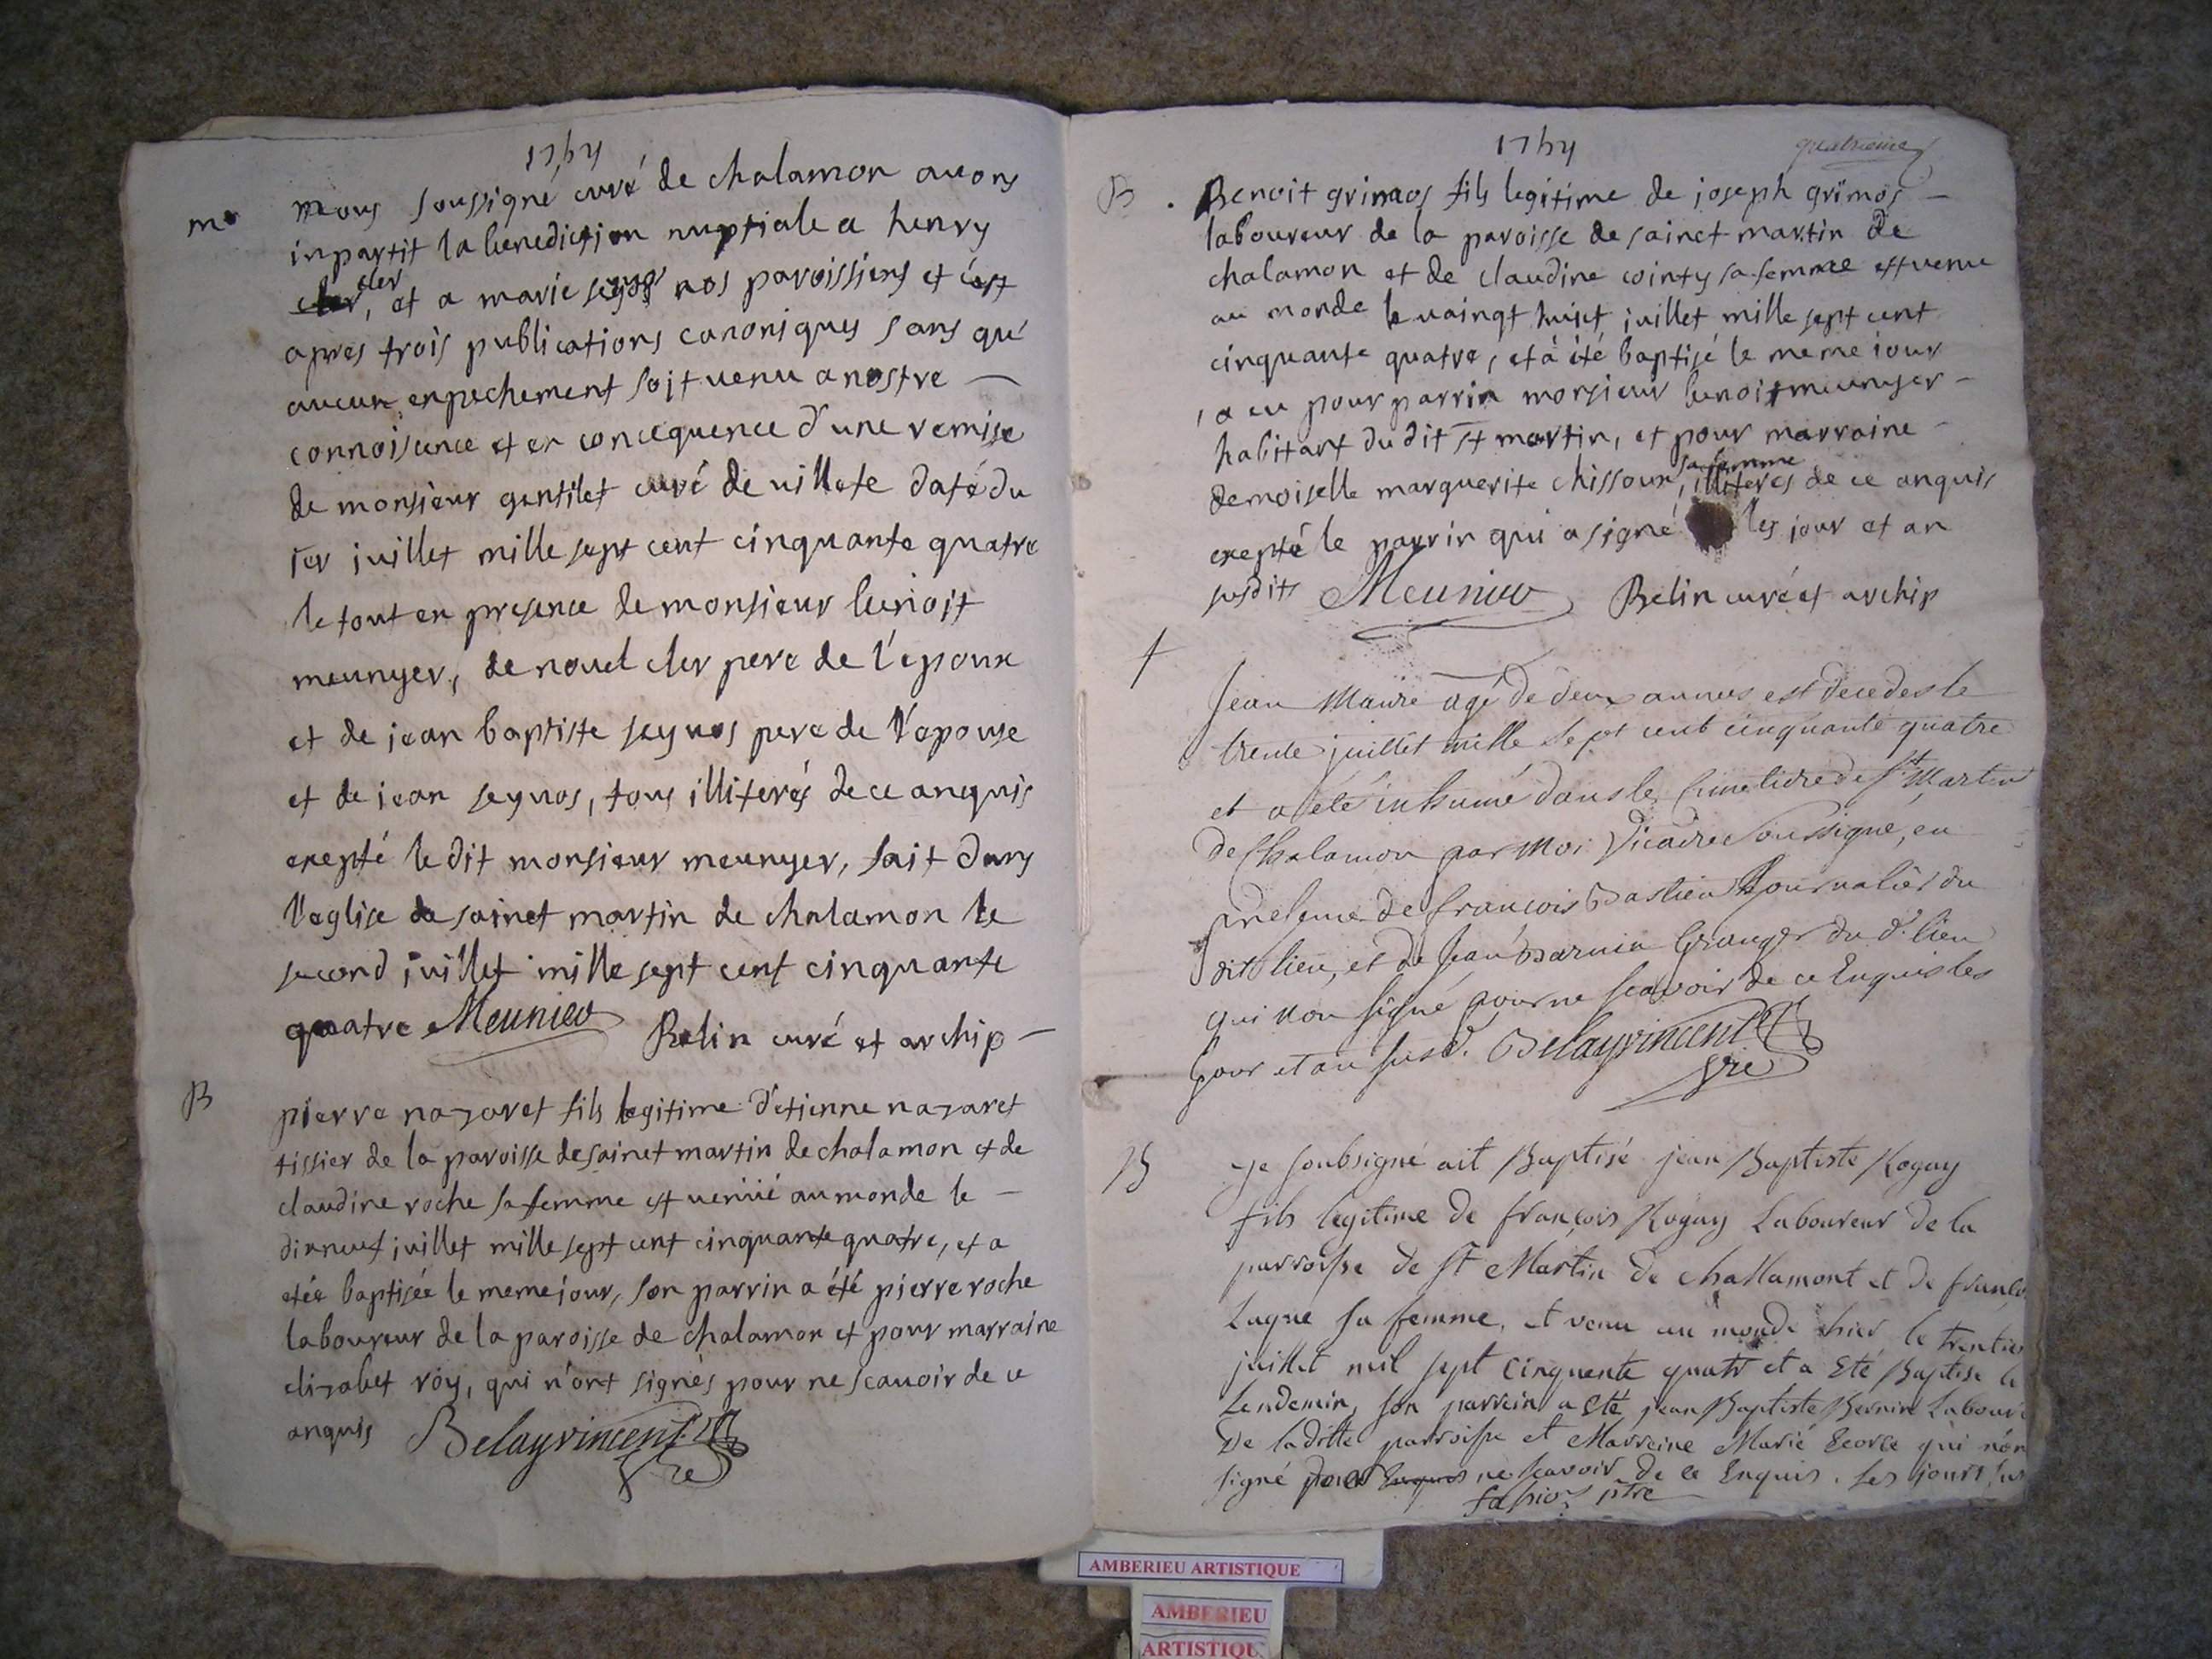 1754
mr nous soussigné curé de chalamon avons
inpartit la benediction nuptiale a henry
cler, et a marie seyvos nos paroissiens et c'est
apres trois publications canoniques sans qu'
aucun enpechement soit venu a nostre —
connoisence et en concequence d'une remise
de monsieur gentilet curé de villete daté du
1er juillet mille sept cent cinquante quatre
le tout en presence de monsieur benoit
meunyer, de nouel cler pere de l'epoux
et de jean baptiste seyvos pere de l'epouse
et de jean seyvos, tous illiterés de ce anquis
exepté le dit monsieur meunyer, fait dans
l'eglise de sainct martin de chalamon le
second juillet mille sept cent cinquante
quatre Meunier Belin curé et archip —
B pierre nazaret fils legitime d'etienne nazaret
tissier de la paroisse de sainct martin de chalamon et de
claudine roche sa femme est venüe au monde le —
dixneuf juillet mille sept cent cinquante quatre, et a
etée baptisée le meme jour, son parrin a été pierre roche
laboureur de la paroisse de chalamon et pour marraine
elizabet roy, qui n'ont signés pour ne scavoir de ce
anquis Belayvincent vre
1754 quatrieme
B . Benoit grimos fils legitime de joseph grimos —
laboureur de la paroisse de sainct martin de
chalamon et de claudine cointy sa femme est venu
au monde le vaingt huict juillet mille sept cent
cinquante quatre, et à été baptisé le meme iour
, a eu pour parrin monsieur benoit meunyer —
habitant du dit st martin, et pour marraine —
demoiselle marguerite chissoux, sa femme illiteres de ce anquis
exepté le parrin qui a signé les jour et an
susdits Meunier Belin curé et archip
† Jean Maure agé de deux annees est decedes le
trente juillet mille sept cent cinquante quatre
et a été inhumé dans le Cimetiere de St Martin
de Chalamon par moi Vicaire Soussigné, en
presence de françois Bastien Journalier du
dit lieu, et de Jean Barnin Granger du d. lieu
qui non signé pour ne scavoir de ce Enquis les
Jour et an susd. Belayvincent vre
B Je soubsigné ait Baptisé jean Baptiste Roguy
fils legitime de françois Roguy Laboureur de la
parroisse de St Martin de challamont et de franço
Luque sa femme, et venu au monde hier le trentie
juillet mil sept Cinquente quatr et a Eté Baptise le
Lendemin, son parrein a Eté jean Baptiste Bernin Laboure
De laditte parroisse et Marreine Marie Ecorce qui n'on
signé pour Enquis ne scavoir de ce Enquis. Les jours sus
ptre
AMBERIEU ARTISTIQUE
AMBERIEU
ARTISTIQU